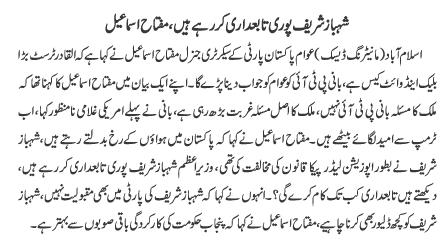 شہباز شریف پوری تابعداری کر رہے ہیں، مفتاح اسماعیل
اسلام آباد (مانیٹرنگ ڈیسک) عوام پاکستان پارٹی کے سیکرٹری جنرل مفتاح اسماعیل نے کہا ہے کہ القادر ٹرسٹ بڑا
بلیک اینڈ وائٹ کیس ہے، بانی پی ٹی آئی کو عوام کو جواب دینا پڑے گا۔ اپنے ایک بیان میں مفتاح اسماعیل کا کہنا تھا کہ
ملک کا مسئلہ بانی پی ٹی آئی نہیں، ملک کا اصل مسئلہ غربت بڑھ رہی ہے، بانی نے پہلے امریکی غلامی نامنظور کہا، اب
ٹرمپ سے امید لگائے بیٹھے ہیں۔ مفتاح اسماعیل نے کہا کہ پاکستان میں ہواؤں کے رخ بدلتے رہتے ہیں، شہباز
شریف نے بطور اپوزیشن لیڈر پیکا قانون کی مخالفت کی تھی، وزیراعظم شہباز شریف پوری تابعداری کر رہے ہیں،
دیکھتے ہیں تابعداری کب تک کام کرے گی؟۔ انہوں نے کہا کہ شہباز شریف کی پارٹی میں بھی مقبولیت نہیں، شہباز
شریف کو کچھ ڈلیور بھی کرنا چاہیے، مفتاح اسماعیل نے کہا کہ پنجاب حکومت کی کارکردگی باقی صوبوں سے بہتر ہے۔